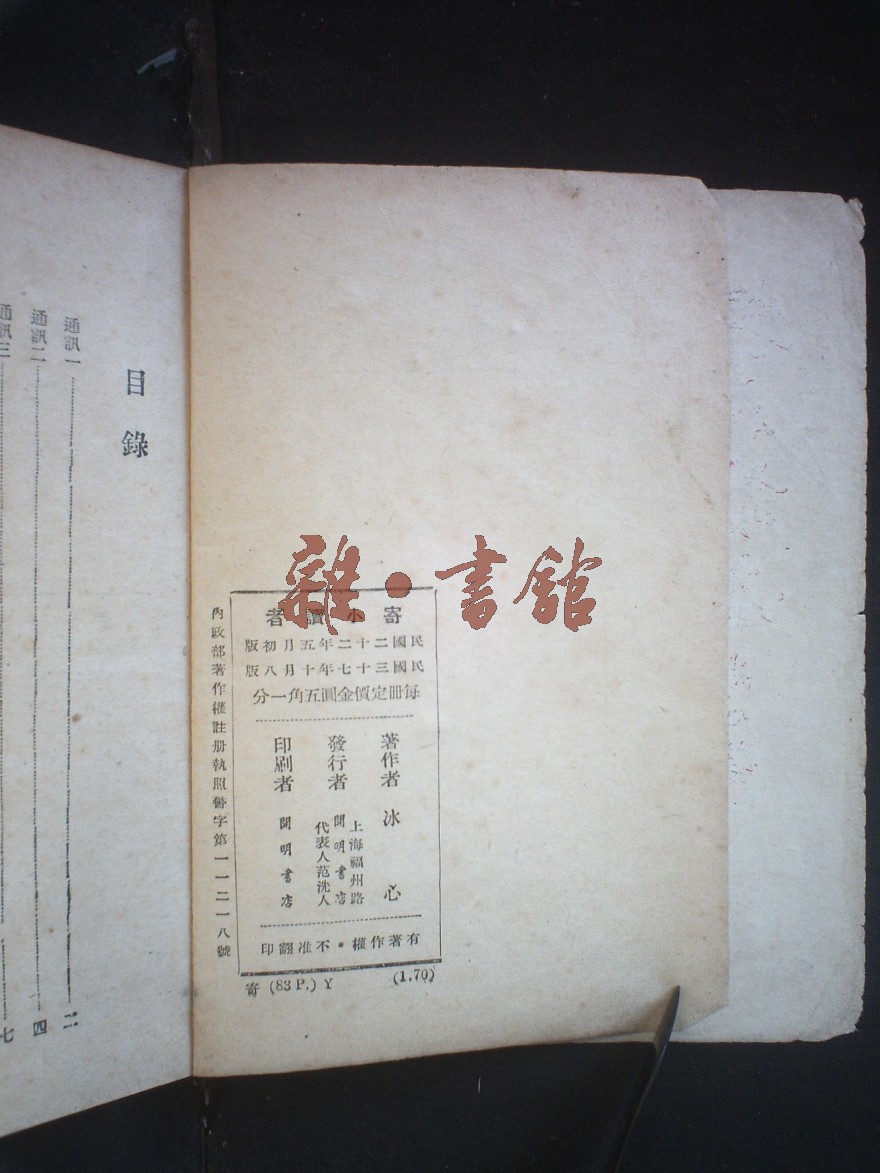 雜·書館
寄小讀者
民國二十二年五月初版
民國三十七年十月八版
每冊定價金圓五角一分
著作者 冰心
發行者 上海福州路
開明書店
代表人范洗人
印刷者 開明書店
有著作權·不准翻印
內政部著作權註册執照警字第一一二一八號
寄 (83 P.) Y (1.70)
目錄
通訊一 二
通訊二 四
通訊三 七